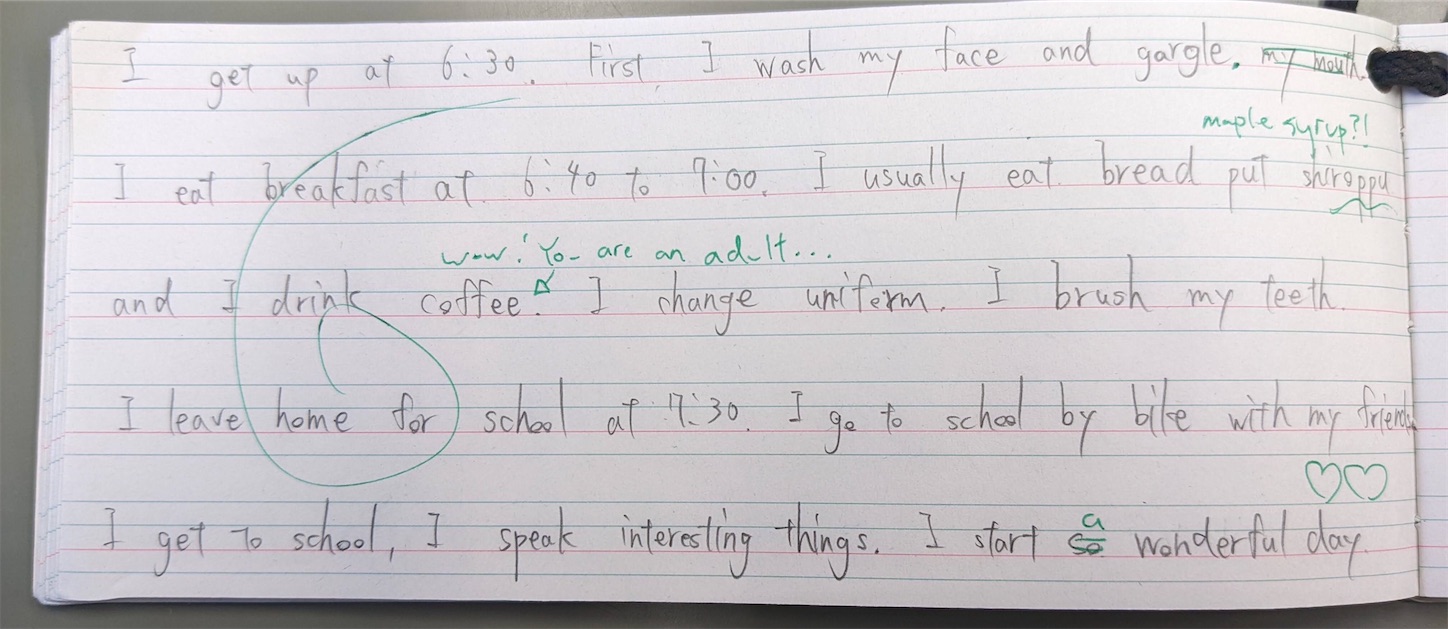 I get up at 6:30. First, I wash my face and gargle. my mouth.
maple syrup?!
I eat breakfast at 6:40 to 7:00. I usually eat bread put shiroppu
wow! You are an adult...
and I drink coffee. I change uniferm. I brush my teeth.
I leave home for school at 7:30. I go to school by bike with my friends
I get to school, I speak interesting things. I start so wonderful day.
a